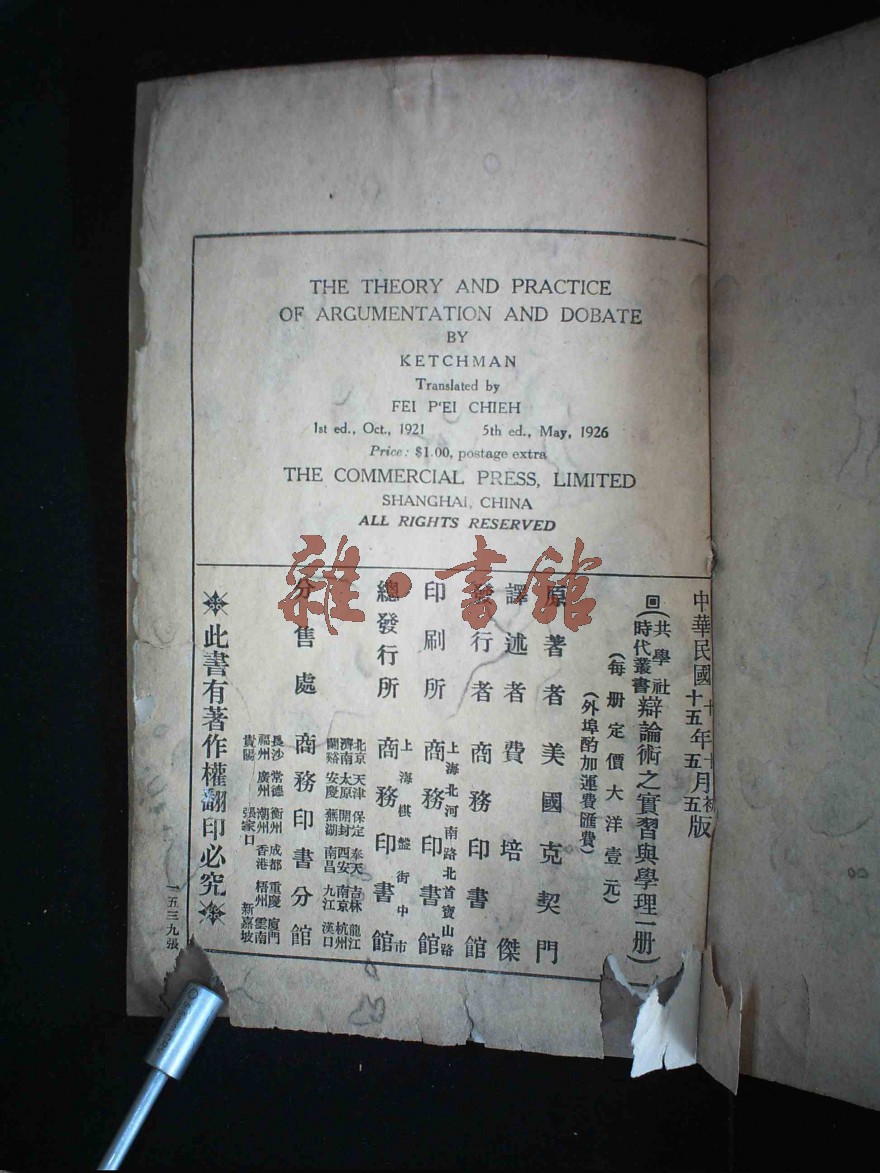 THE THEORY AND PRACTICE
OF ARGUMENTATION AND DOBATE
BY
KETCHMAN
Translated by
FEI P'EI CHIEH
1st ed., Oct., 1921 5th ed., May, 1926
Price: $1.00, postage extra
THE COMMERCIAL PRESS, LIMITED
SHANGHAI, CHINA
ALL RIGHTS RESERVED
雜·書館
中華民國
十年十月初
十五年五月五
版
回
共學社
時代叢書
辯論術之實習與學理一册)
(每册定價大洋壹元)
(外埠酌加運費匯費)
原著者 美國克契門
譯述者 費培傑
發行者 商務印書館
印刷所
上海北河南路北首寶山路
商務印書館
總發行所
上海棋盤街中市
商務印書館
分售處
商務印書分館
北京 天津 保定 奉天 吉林 龍江
濟南 太原 開封 西安 南京 杭州
蘭谿 安慶 蕪湖 南昌 九江 漢口
長沙 常德 衡州 成都 重慶 廈門
福州 廣州 潮州 香港 梧州 雲南
貴陽 張家口 新嘉坡
此書有著作權翻印必究
一五三九張